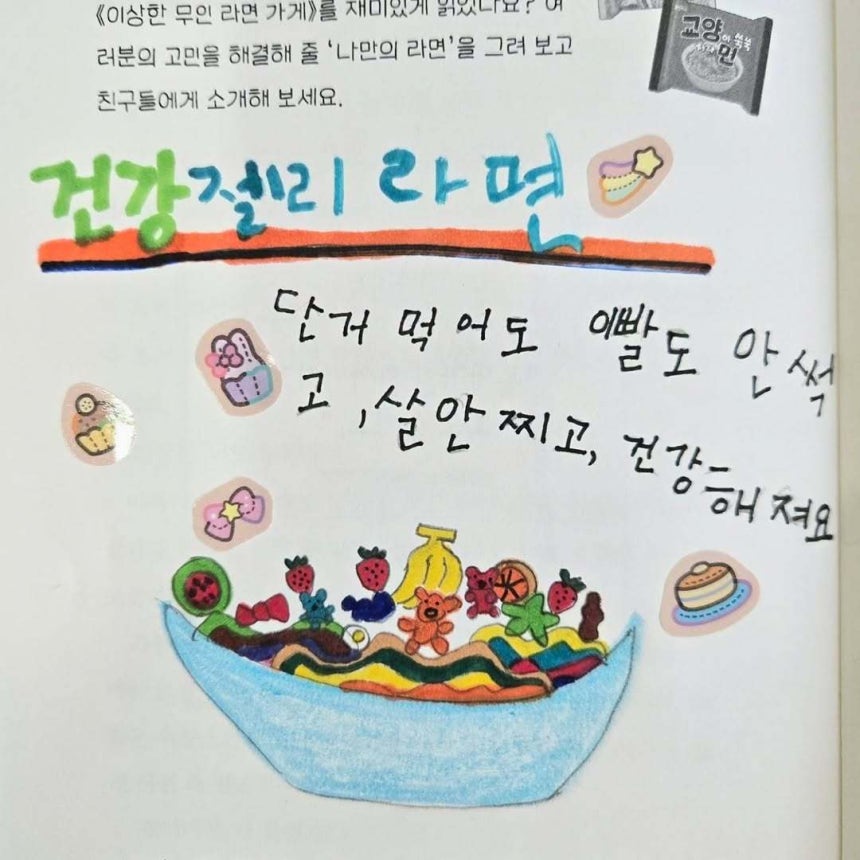 《이상한 무인 라면 가게》를 재미있게 읽었나요? 여
러분의 고민을 해결해 줄 ‘나만의 라면’을 그려 보고
친구들에게 소개해 보세요.
교양이 쑥쑥
면
건강젤리 라면
단거 먹어도 이빨도 안썩
고, 살안찌고, 건강해져요